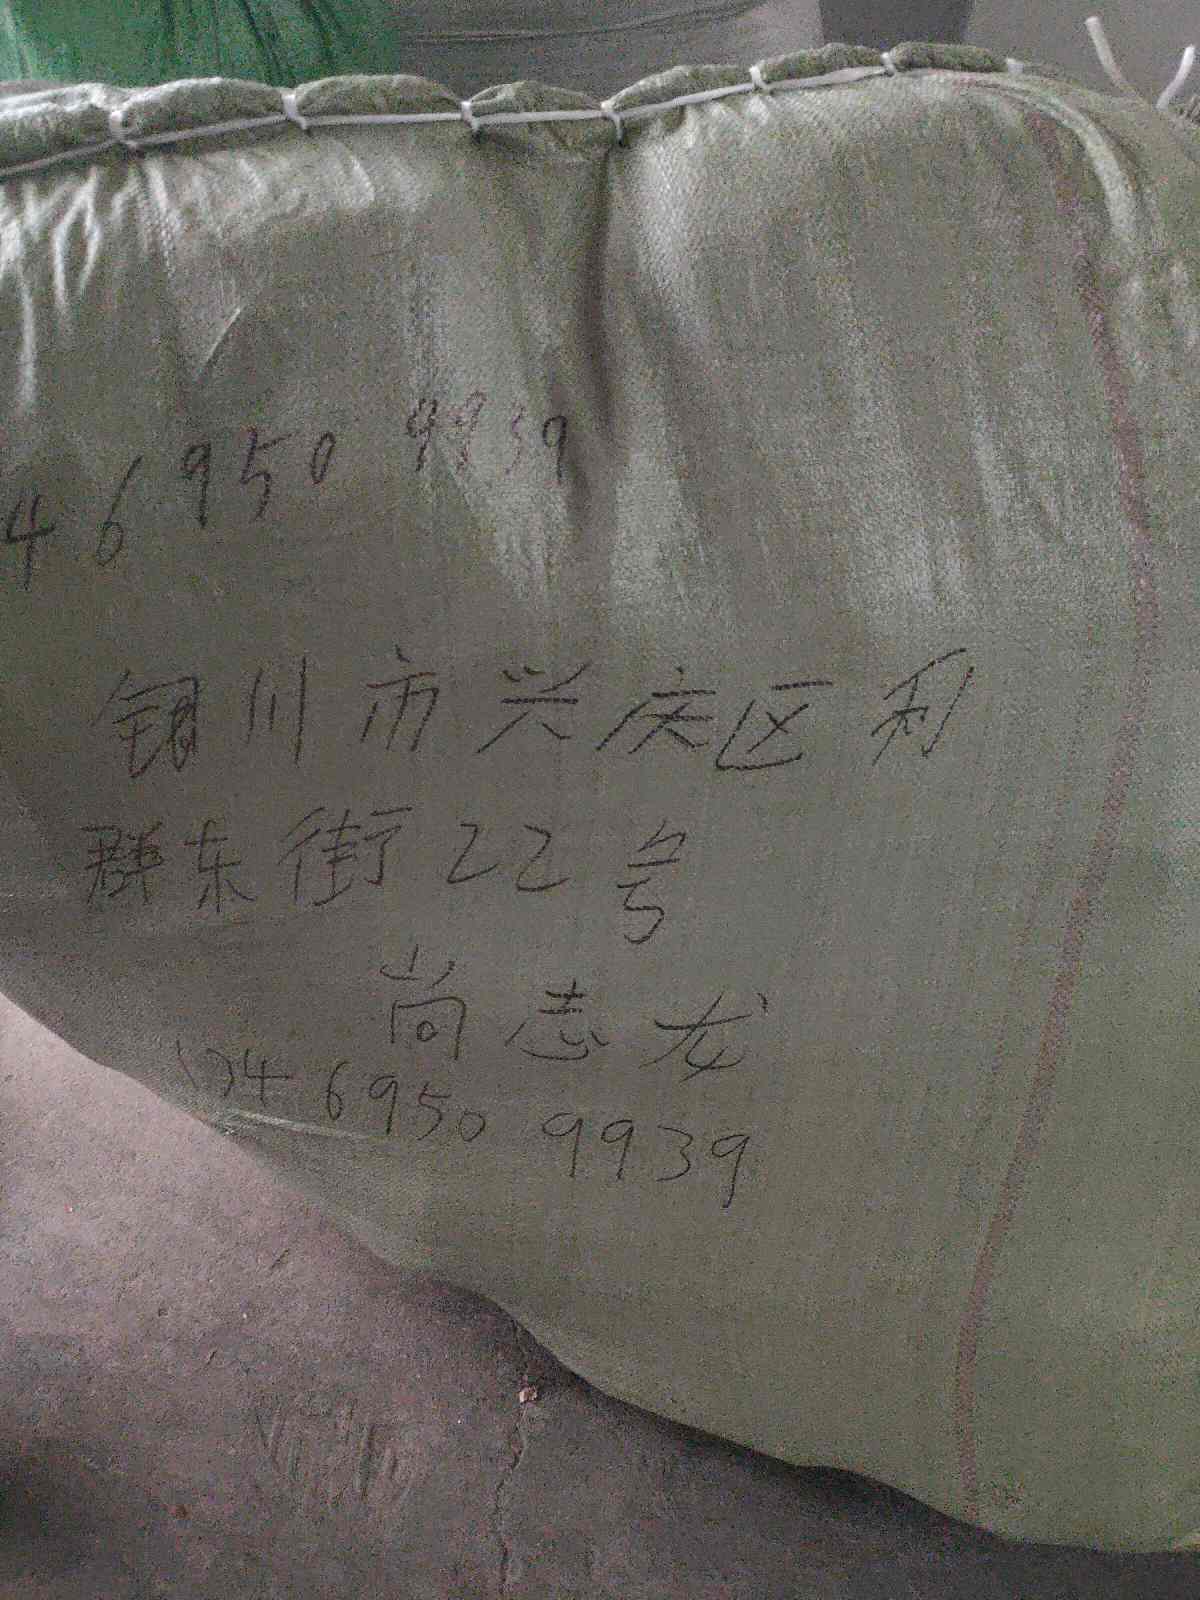 46 950 9939
银川市兴庆区利
群东街22号
尚志龙
134 6950 9939